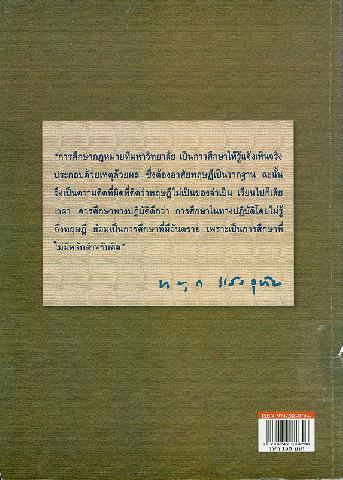 "การศึกษากฎหมายที่มหาวิทยาลัย เป็นการศึกษาให้รู้แจ้งเห็นจริง
ประกอบด้วยเหตุด้วยผล ซึ่งต้องอาศัยทฤษฎีเป็นรากฐาน ฉะนั้น
จึงเป็นความคิดที่ผิดที่คิดว่าทฤษฎีไม่เป็นของจำเป็น เรียนไปก็เสีย
เวลา การศึกษาทางปฏิบัติดีกว่า การศึกษาในทางปฏิบัติโดยไม่รู้
ถึงทฤษฎี ย่อมเป็นการศึกษาที่มีอันตราย เพราะเป็นการศึกษาที่
ไม่มีหลักสำหรับคิด"